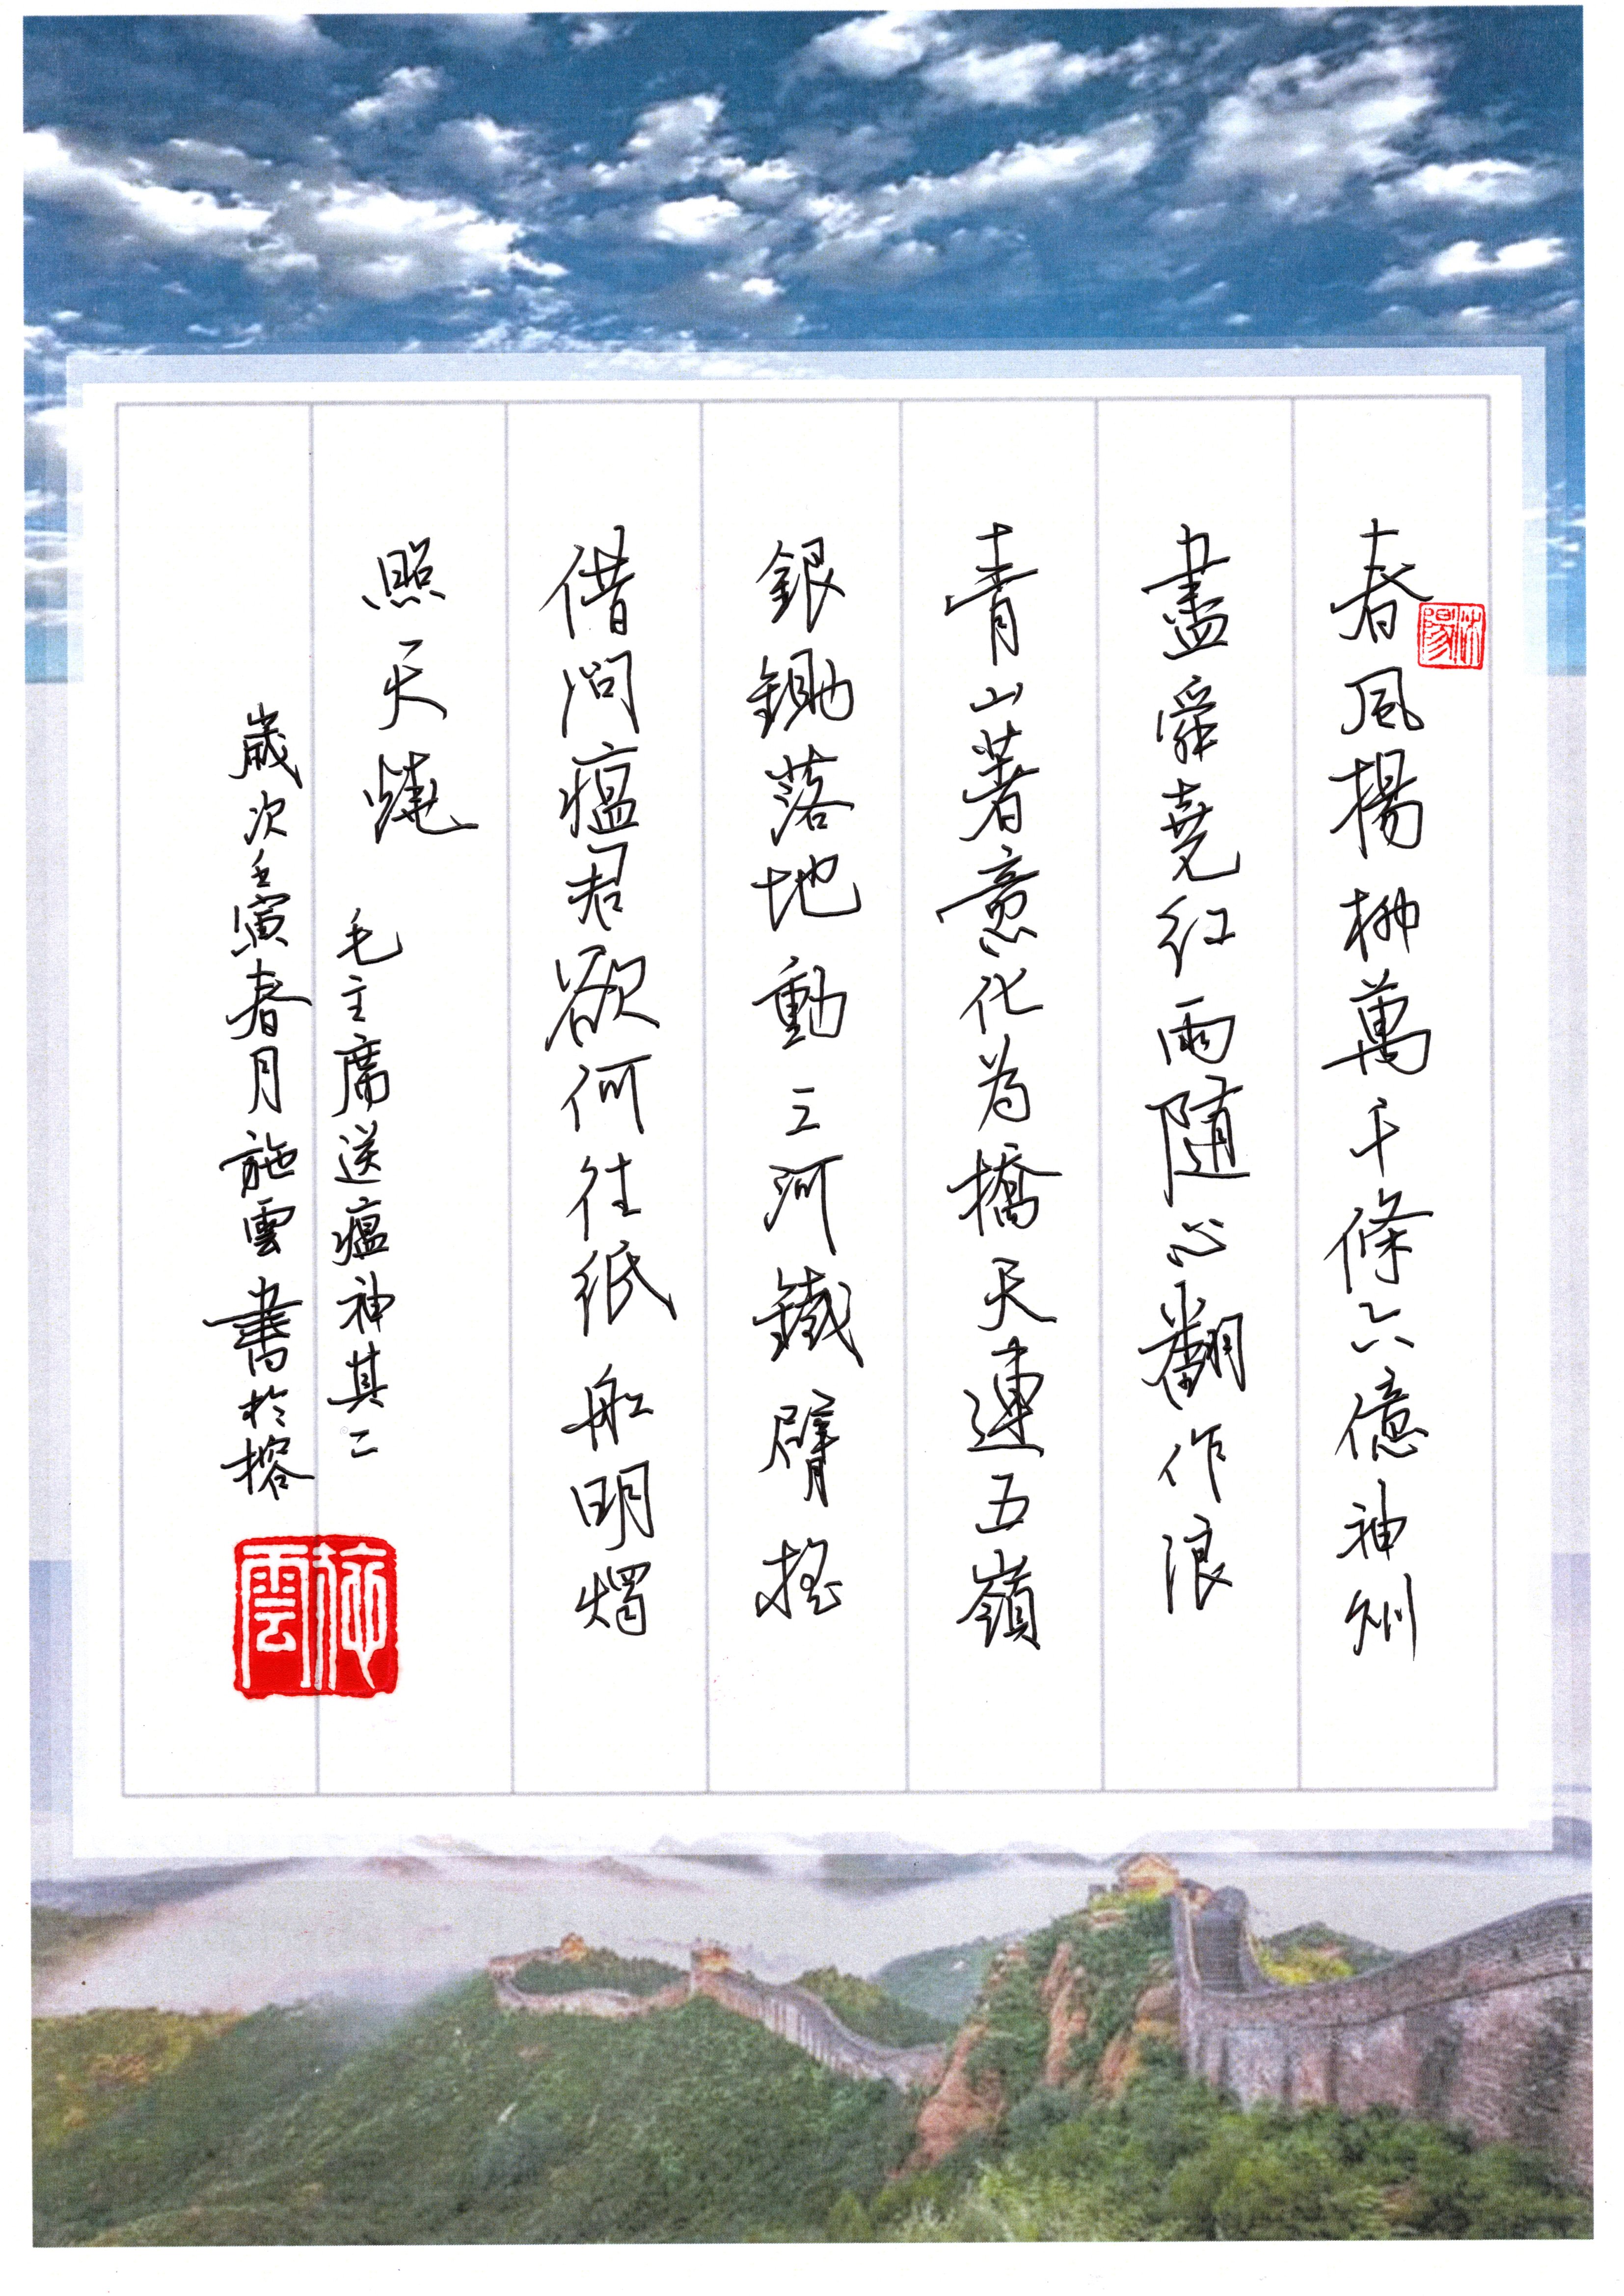 春風楊柳萬千條六億神州
盡舜堯紅雨隨心翻作浪
青山著意化为橋天連五嶺
銀鋤落地動三河鐵臂搖
借问瘟君欲何往紙船明燭
照天燒
毛主席送瘟神其二
歲次壬寅春月施雲書於榕
施雲